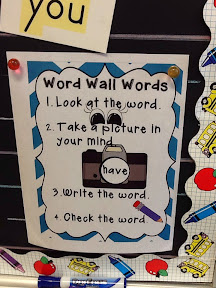 you
Word Wall Words
1. Look at the word.
2. Take a picture in
your mind.
have
3. Write the word.
4. Check the word.